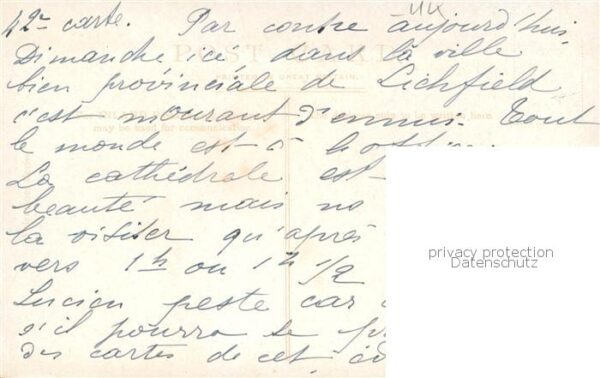 42e carte. Par contre aujourd'hui
Dimanche ici dans la ville
bien provinciale de Lichfield
c'est mourant d'ennui. Tout
le monde est à
La cathédrale est
beauté mais no
la visiter qu'après
vers 1h ou 1h 1/2
Lucien peste car
s'il pourra se
des cartes de cet
POST CARD
PRINTED IN GREAT BRITAIN.
may be used for communication
here
privacy protection
Datenschutz